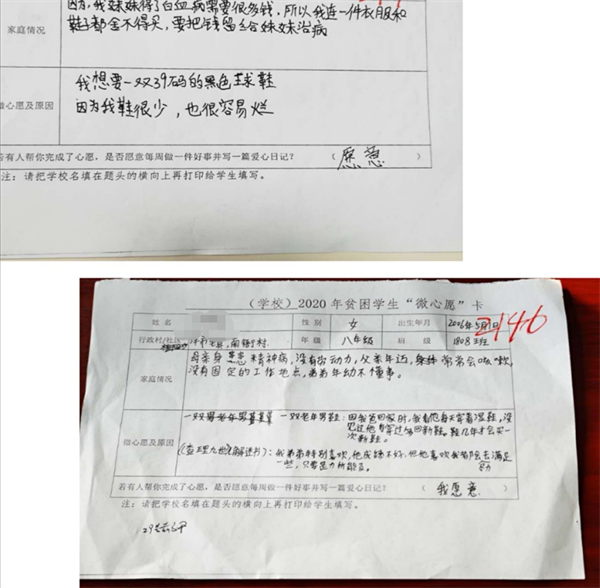 因为,我妹妹得了白血病需要很多钱,所以我连一件衣服和
鞋子都舍不得买,要把钱留给妹妹治病
家庭情况
我想要一双39码的黑色球鞋
因为我鞋很少,也很容易烂
微心愿及原因
若有人帮你完成了心愿,是否愿意每周做一件好事并写一篇爱心日记?(愿意)
注:请把学校名填在题头的横向上再打印给学生填写。
(学校)2020年贫困学生“微心愿”卡
姓名 性别 女 出生年月 2006年5月
2146
行政村/社区 年级 八年级 班级 1808班
母亲身患精神病,没有劳动力,父亲年迈,身体常常会咳嗽,
没有固定的工作地点,弟弟年幼不懂事。
家庭情况
一双老年男鞋:因我爸回家时,我看他每天穿着湿鞋,没
见过他穿过
微心愿及原因
次新鞋。
《查理九世》:我弟弟特别喜欢,他成绩不好,但他喜欢我都会去满足
一些,只要是力所能及
若有人帮你完成了心愿,是否愿意每周做一件好事并写一篇爱心日记?(我愿意)
注:请把学校名填在题头的横向上再打印给学生填写。